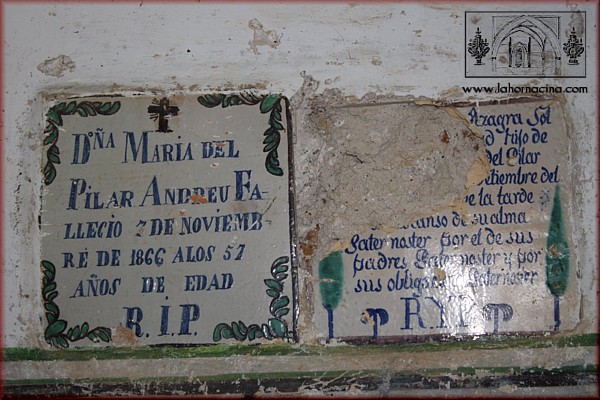 www.lahornacina.com
Dña MARIA DEL
PILAR ANDREU FA-
LLECIO 7 DE NOVIEMB-
RE DE 1866 A LOS 57
AÑOS DE EDAD
R.I.P.
Azagra Sol
Hijo de
del Pilar
etiembre del
e la tarde
anso de su alma
Paternoster por el de sus
padres Paternoster y por
sus obligs Paternoster
R.Y.P.